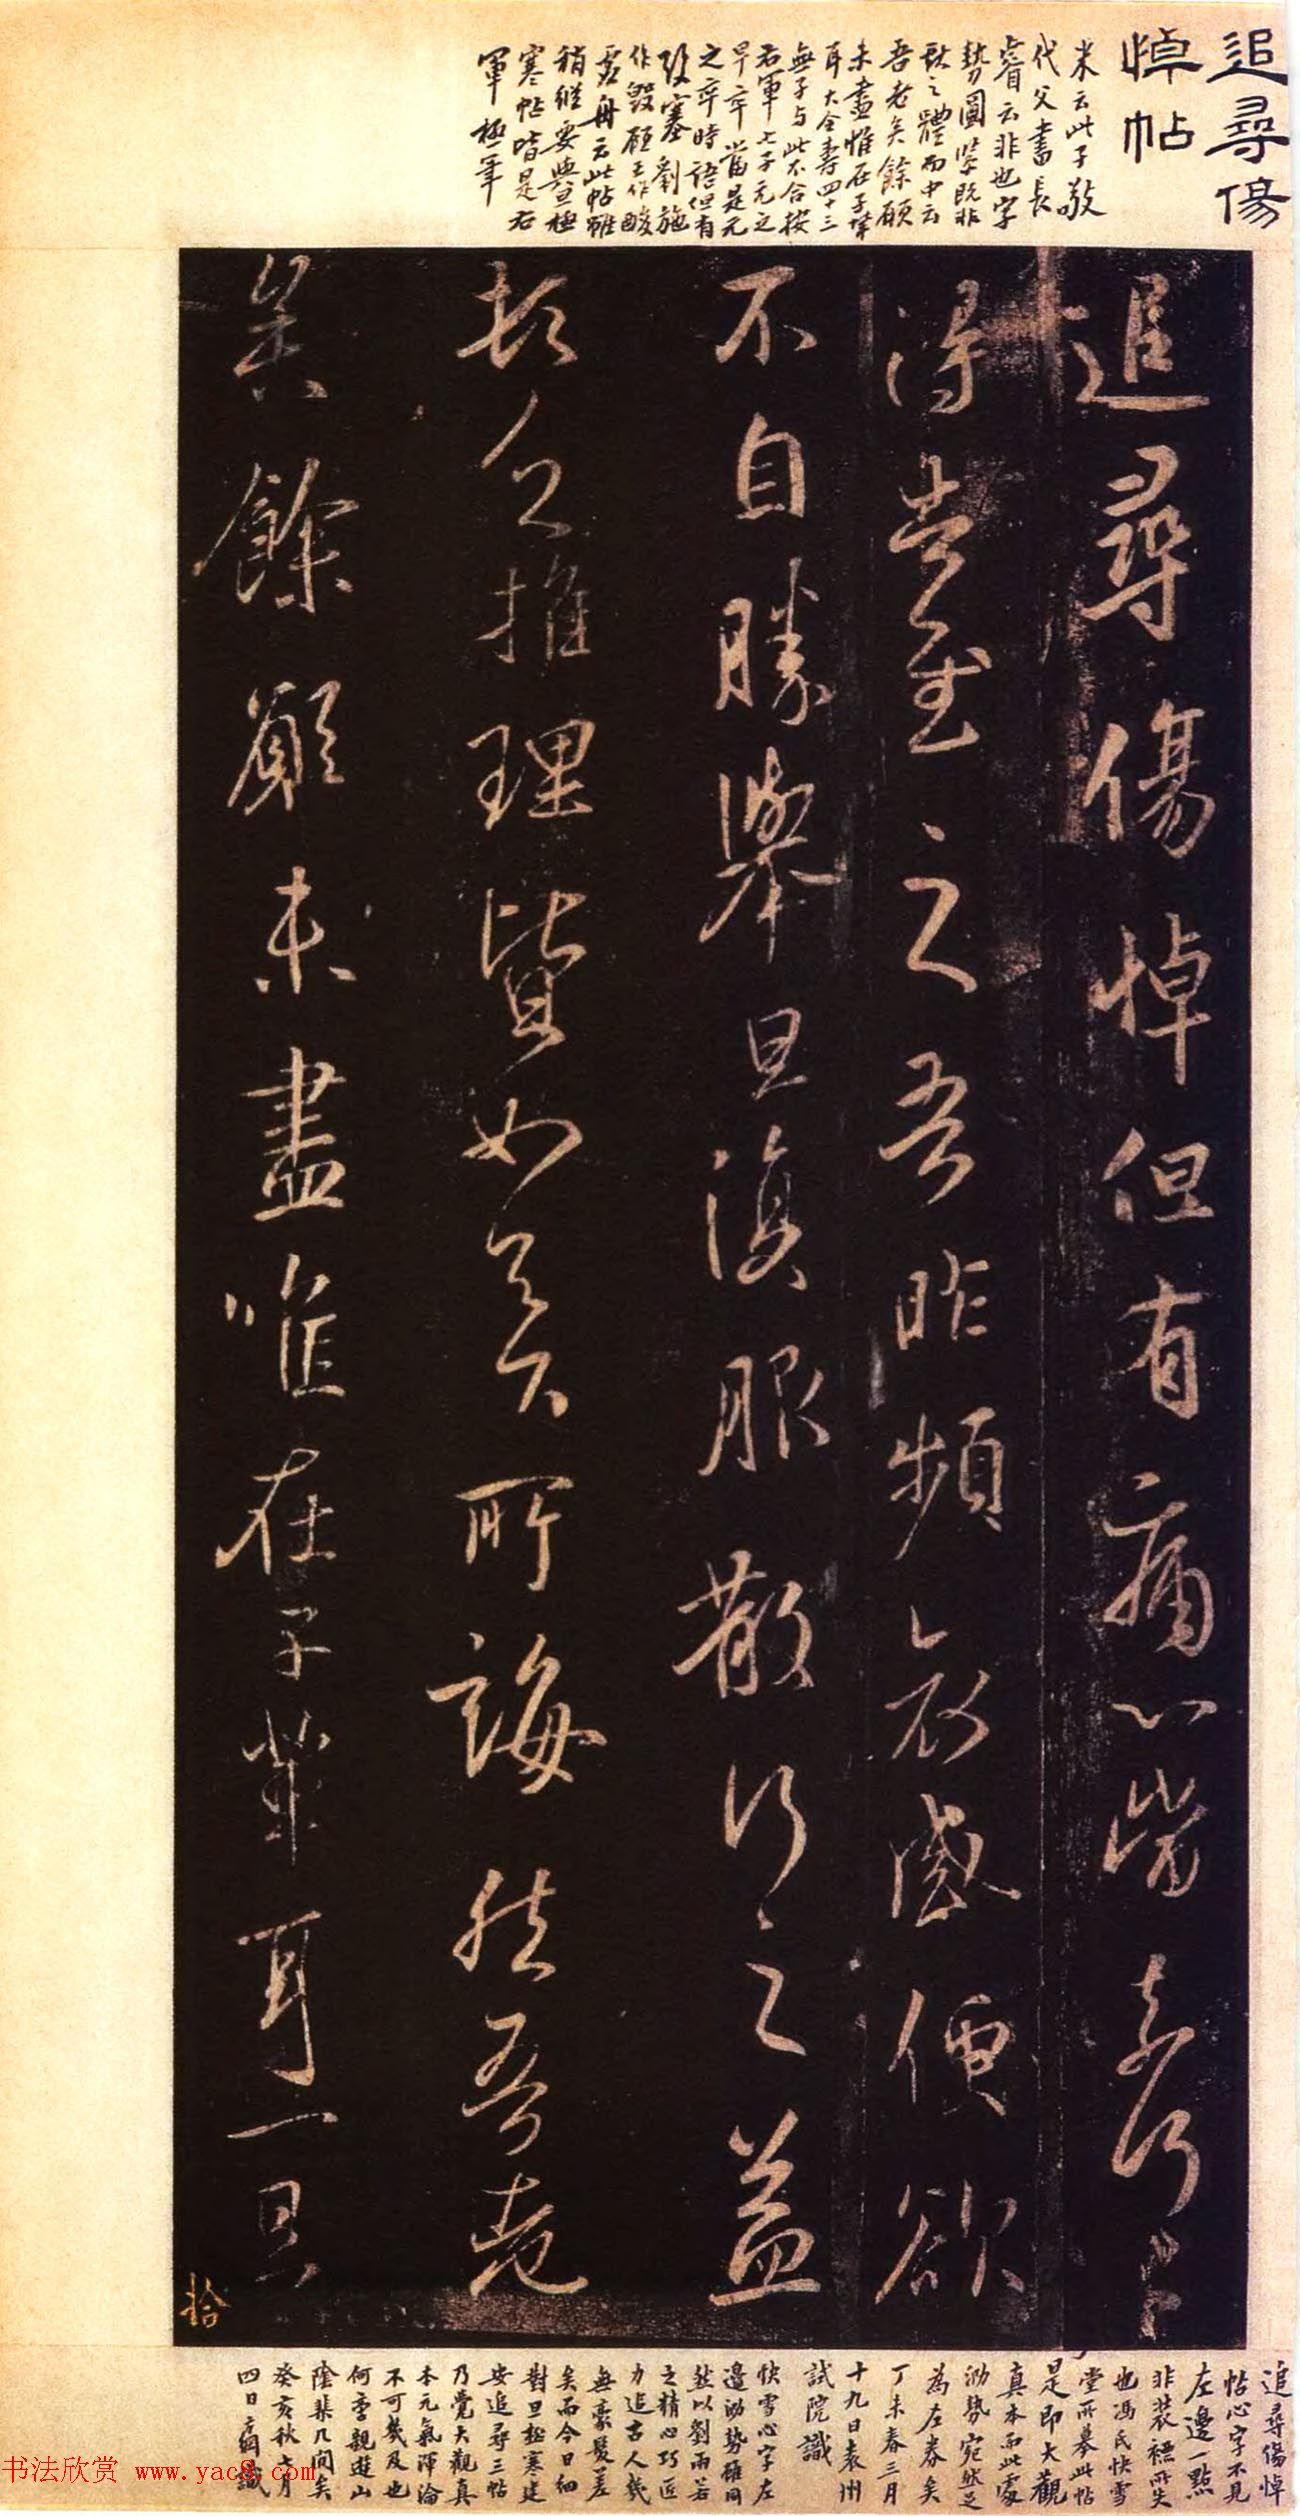 追尋傷
悼帖
米云此子敬
代父書長
睿云非也字
勢圓柴既非
獻之體而中云
吾老矣餘願
未盡惟在子輩
耳大令壽四十三
無子与此不合按
右軍七子元之
早卒當是元
之卒時語但有
作毀願王作酸
虛舟云此帖雖
稍縱要與豆極
寒帖皆是右
軍極筆
追尋傷悼但有痛心當奈何
得告慰之吾昨頻哀感便欲
不自勝舉旦復服散行之益
頓乏推理皆如足下所誨然吾老
矣餘願未盡唯在子輩耳一旦
拾
追尋傷悼
帖心字不見
左邊一點
非裝褾所失
也馮氏快雪
堂所摹此帖
是即大觀
真本而此處
泐勢宛然足
為左券矣
丁未春三月
十九日袁州
試院識
快雪心字左
邊泐勢雖同
然以劉雨若
之精心巧匠
力追古人幾
無豪髮差
矣而今日細
對旦極寒建
安追尋三帖
乃覺大觀真
本元氣渾淪
不可幾及也
何季親遊山
陰棐几間矣
癸亥秋七月
四日方綱識
书法欣赏 www.yac8.com